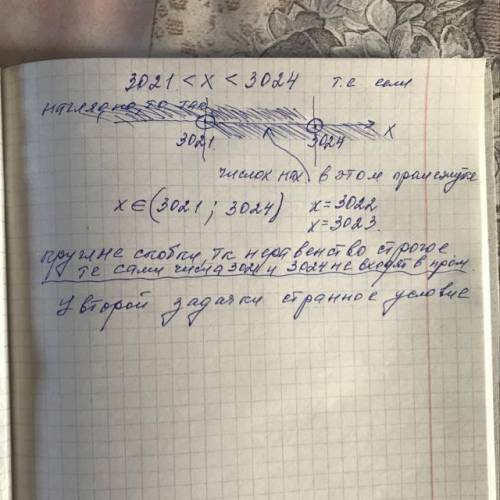 3021 < x < 3024 т.е если
наглядно то так
3021 3024 x
число x нах. в этом промежутке
x ∈ (3021 ; 3024) x = 3022
x = 3023.
круглые скобки, тк неравенство строгое
те сами числа 3021 и 3024 не входят в пром.
У второй задачки странное условие